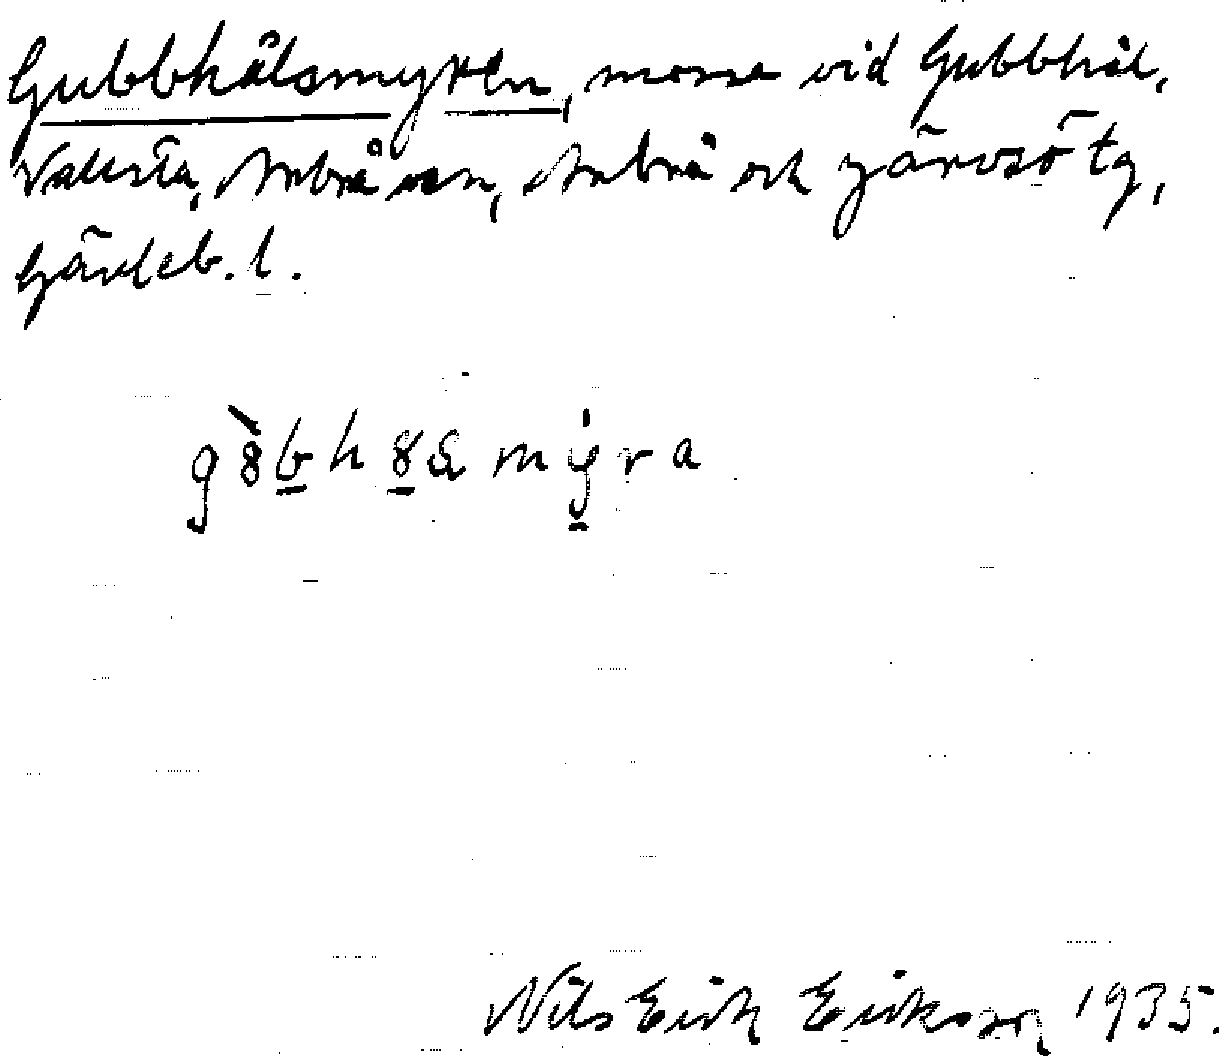 Gubbhålsmyren, mosse vid Gubbhål,
Vallsta, Arbrå sn, Arbrå och Järvsö tg,
Gävleb. l.
Nils Erik Erikson 1935.